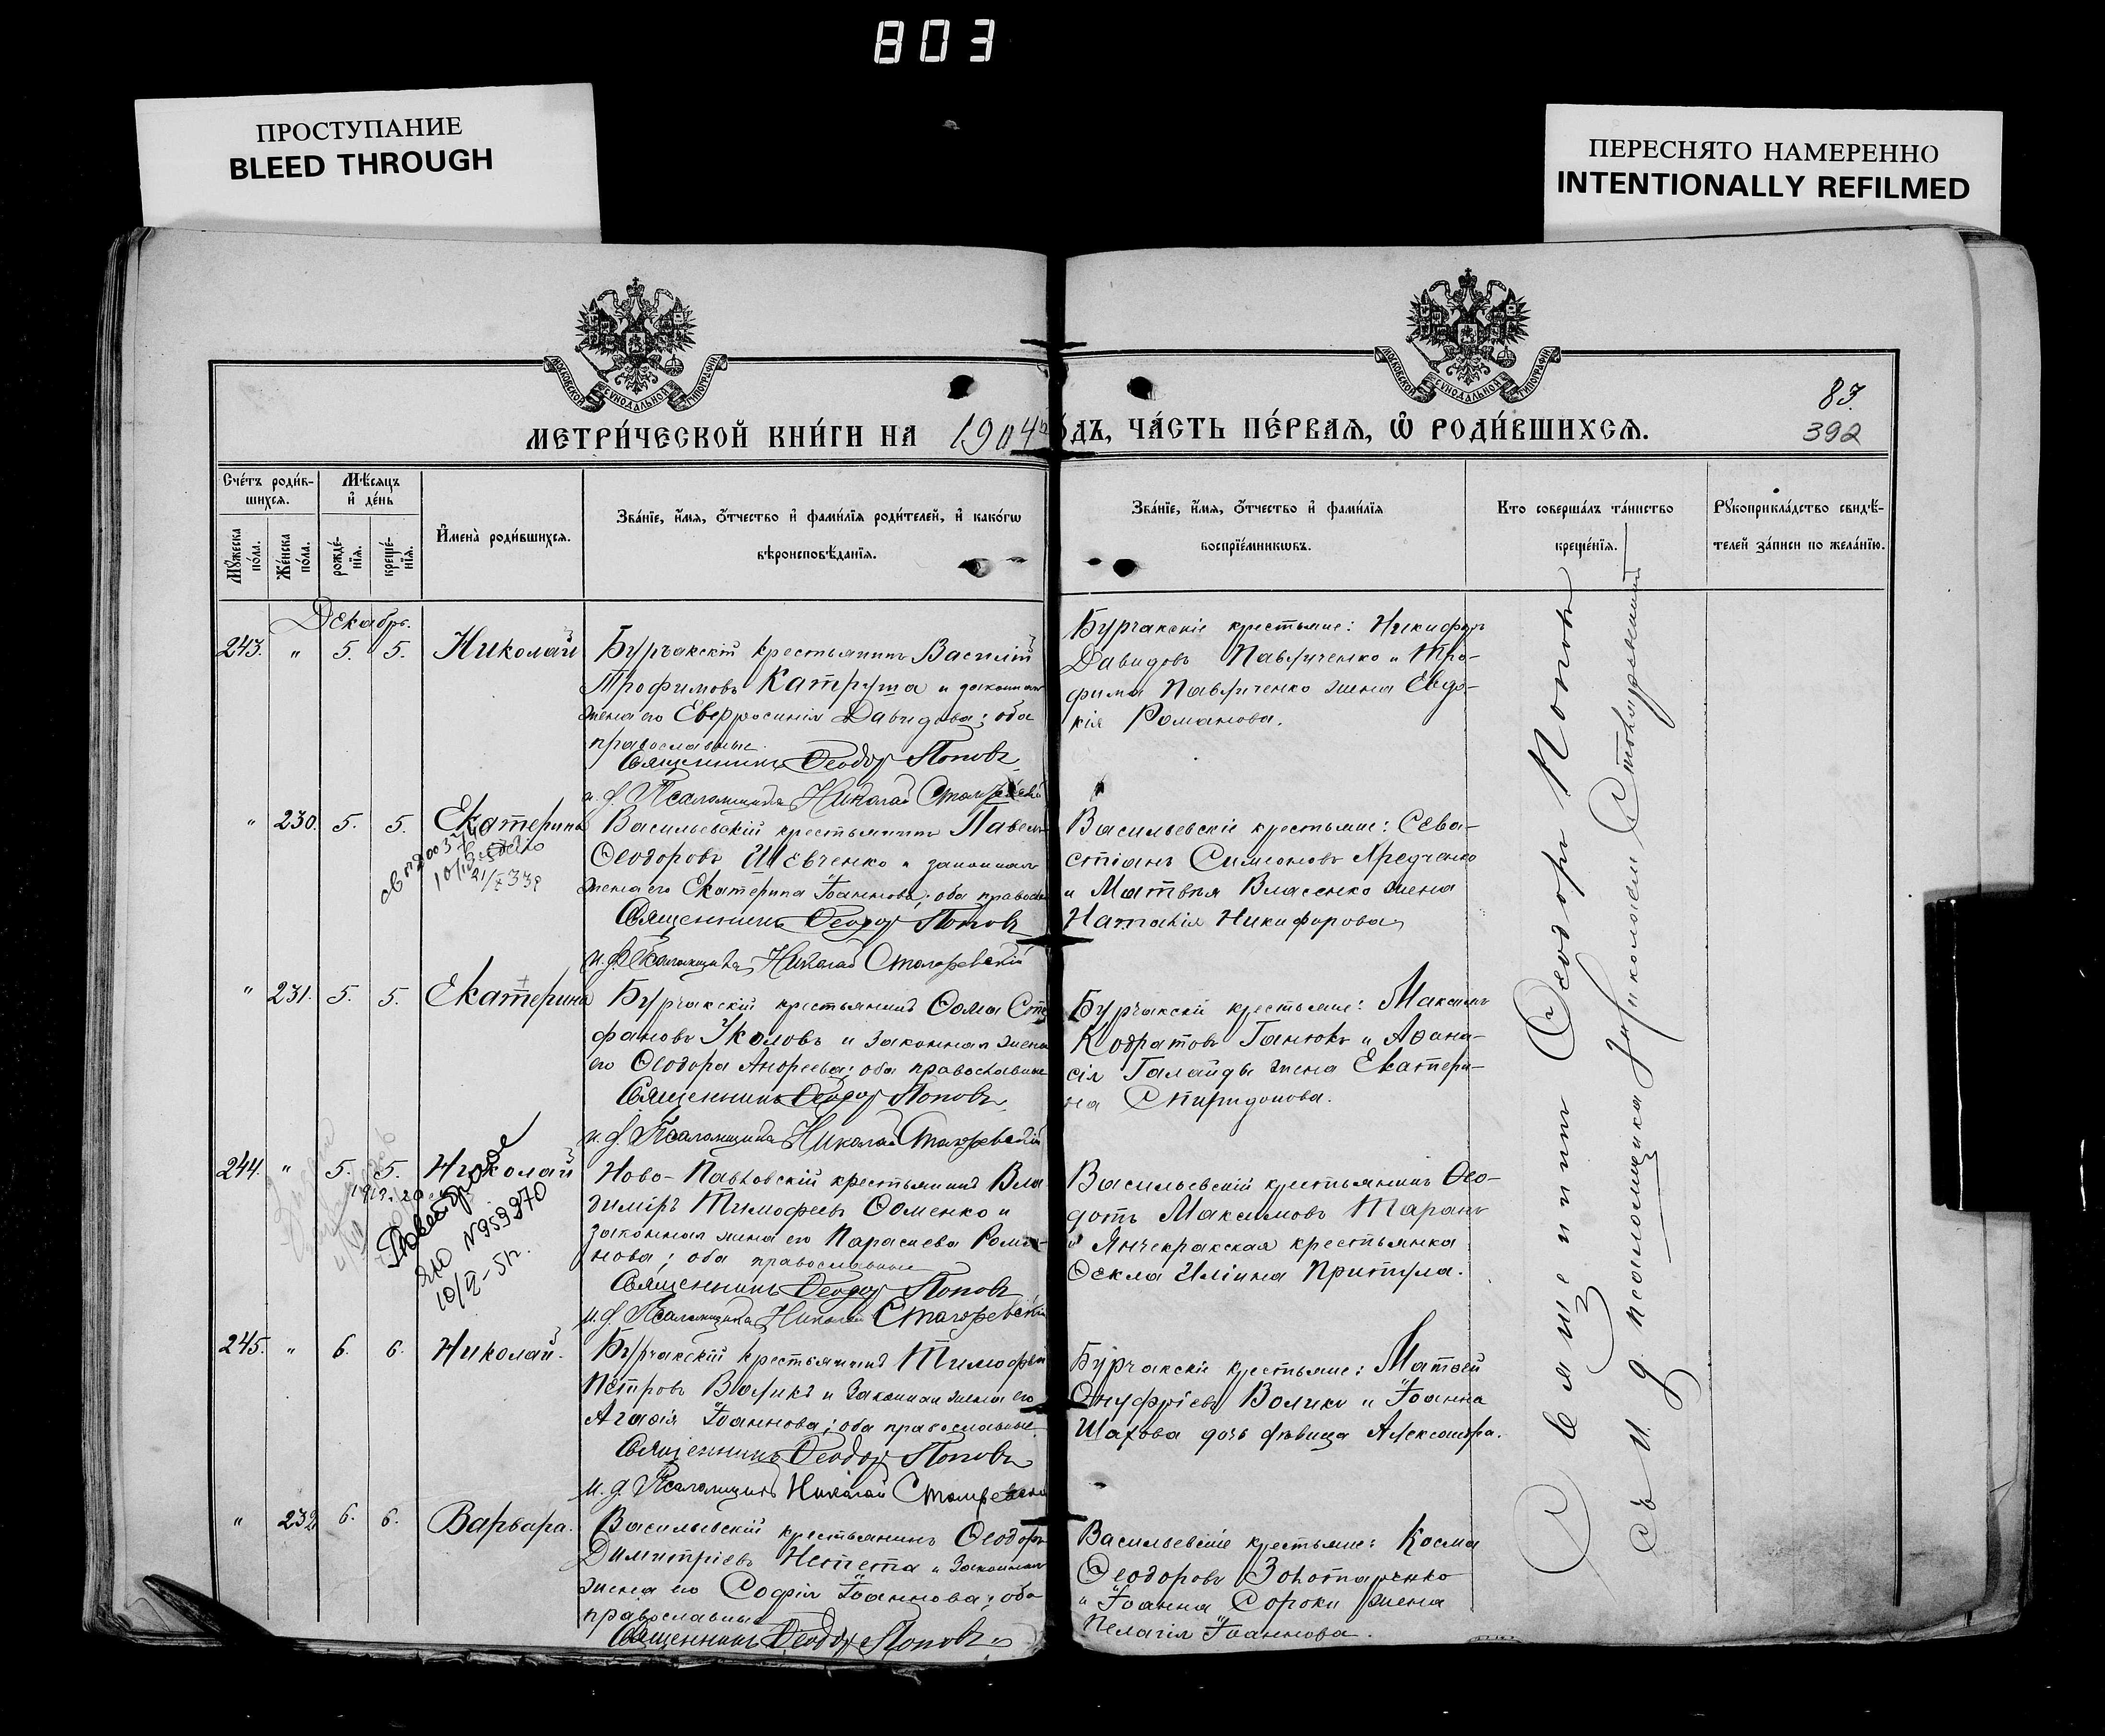 803
ПРОСТУПАНИЕ
BLEED THROUGH
ПЕРЕСНЯТО НАМЕРЕННО
INTENTIONALLY REFILMED
МОСКОВСКОЙ СѴНОДАЛЬНОЙ ТИПОГРАФІИ
МОСКОВСКОЙ СѴНОДАЛЬНОЙ ТИПОГРАФІИ
83.
392
МЕТРИ́ЧЕСКОЙ КНИ́ГИ НА 1904 ГОДЪ, ЧА́СТЬ ПЕ́РВАѦ, Ѽ РОДИ́ВШИХСѦ.
Сче́тъ роди́в-
шихсѧ.
Мꙋ́жеска по́ла.
Же́нска по́ла.
Мѣ́сѧцъ и҆ де́нь
рожде́-нїѧ.
креще́-нїѧ.
И҆мена̀ роди́вшихсѧ.
Зва́нїе, и҆́мѧ, ѻ҆́тчество и҆ фами́лїѧ роди́телей, и҆ како́гѡ
вѣроисповѣ́данїѧ.
Зва́нїе, и҆́мѧ, ѻ҆́тчество и҆ фами́лїѧ
воспрїе́мникѡвъ.
Кто соверша́лъ та́инство
креще́нїѧ.
Рꙋкоприкла́дство свидѣ́-
телей за́писи по жела́нїю.
Декабрь.
243. " 5. 5. Николай
Бурчакскій крестьянинъ Василій
Трофимовъ Катруша и законная
жена его Евфросинія Давидова; оба
православные.
Священникъ Ѳеодоръ Поповъ
и. д. Псаломщика Николай
Бурчакскіе крестьяне: Никифоръ
Давидовъ Павличенко и Тро-
фима Павличенко жена Евдо-
кія Романова.
" 230. 5. 5. Екатерина
Васильевскій крестьянинъ Павелъ
Ѳеодоровъ Шевченко и законная
жена его Екатерина Іоаннова; оба православ
Священникъ Ѳеодоръ Поповъ
и. д. Псаломщика Николай
Васильевскіе крестьяне: Сева-
стіанъ Симеоновъ
и Матѳія Власенко жена
Наталія Никифорова
" 231. 5. 5. Екатерина
Бурчакскій крестьянинъ Ѳома Сте
фановъ Уколовъ и законная жена
его Ѳеодора Андреева; оба православные
Священникъ Ѳеодоръ Поповъ
и. д. Псаломщика Николай
Бурчакскіе крестьяне: Максимъ
Кодратовъ Ганюкъ и Аѳана-
сія Галайды жена Екатери-
на Спиридонова.
244. " 5. 5. Николай
№959270
10/V-51г.
Ново-Павловскій крестьянинъ Вла
диміръ Тимофеевъ Ѳоменко и
законная жена его Параскева Рома-
нова; оба православные
Священникъ Ѳеодоръ Поповъ
и. д. Псаломщика Николай
Васильевскій крестьянинъ Ѳео-
дотъ Максимовъ Таранъ
и Янчекракская крестьянка
Ѳекла Иліина Притула.
245. " 6. 6. Николай.
Бурчакскій крестьянинъ Тимофей
Петровъ Воликъ и законная жена его
Агафія Іоаннова; оба православные
Священникъ Ѳеодоръ Поповъ
и. д. Псаломщика Николай
Бурчакскіе крестьяне: Матѳей
Онуфріевъ Воликъ и Іоанна
Шахова дочь дѣвица Александра.
" 232 6. 6. Варвара.
Васильевскій крестьянинъ Ѳеодоръ
Димитріевъ Непета и законная
жена его Софія Іоаннова; оба
православные
Священникъ Ѳеодоръ Поповъ
Васильевскіе крестьяне: Косма
Ѳеодоровъ Золотаренко
и Іоанна Сороки жена
Пелагія Іоаннова.
Священникъ Ѳеодоръ Поповъ
съ и. д. псаломщика Николаемъ